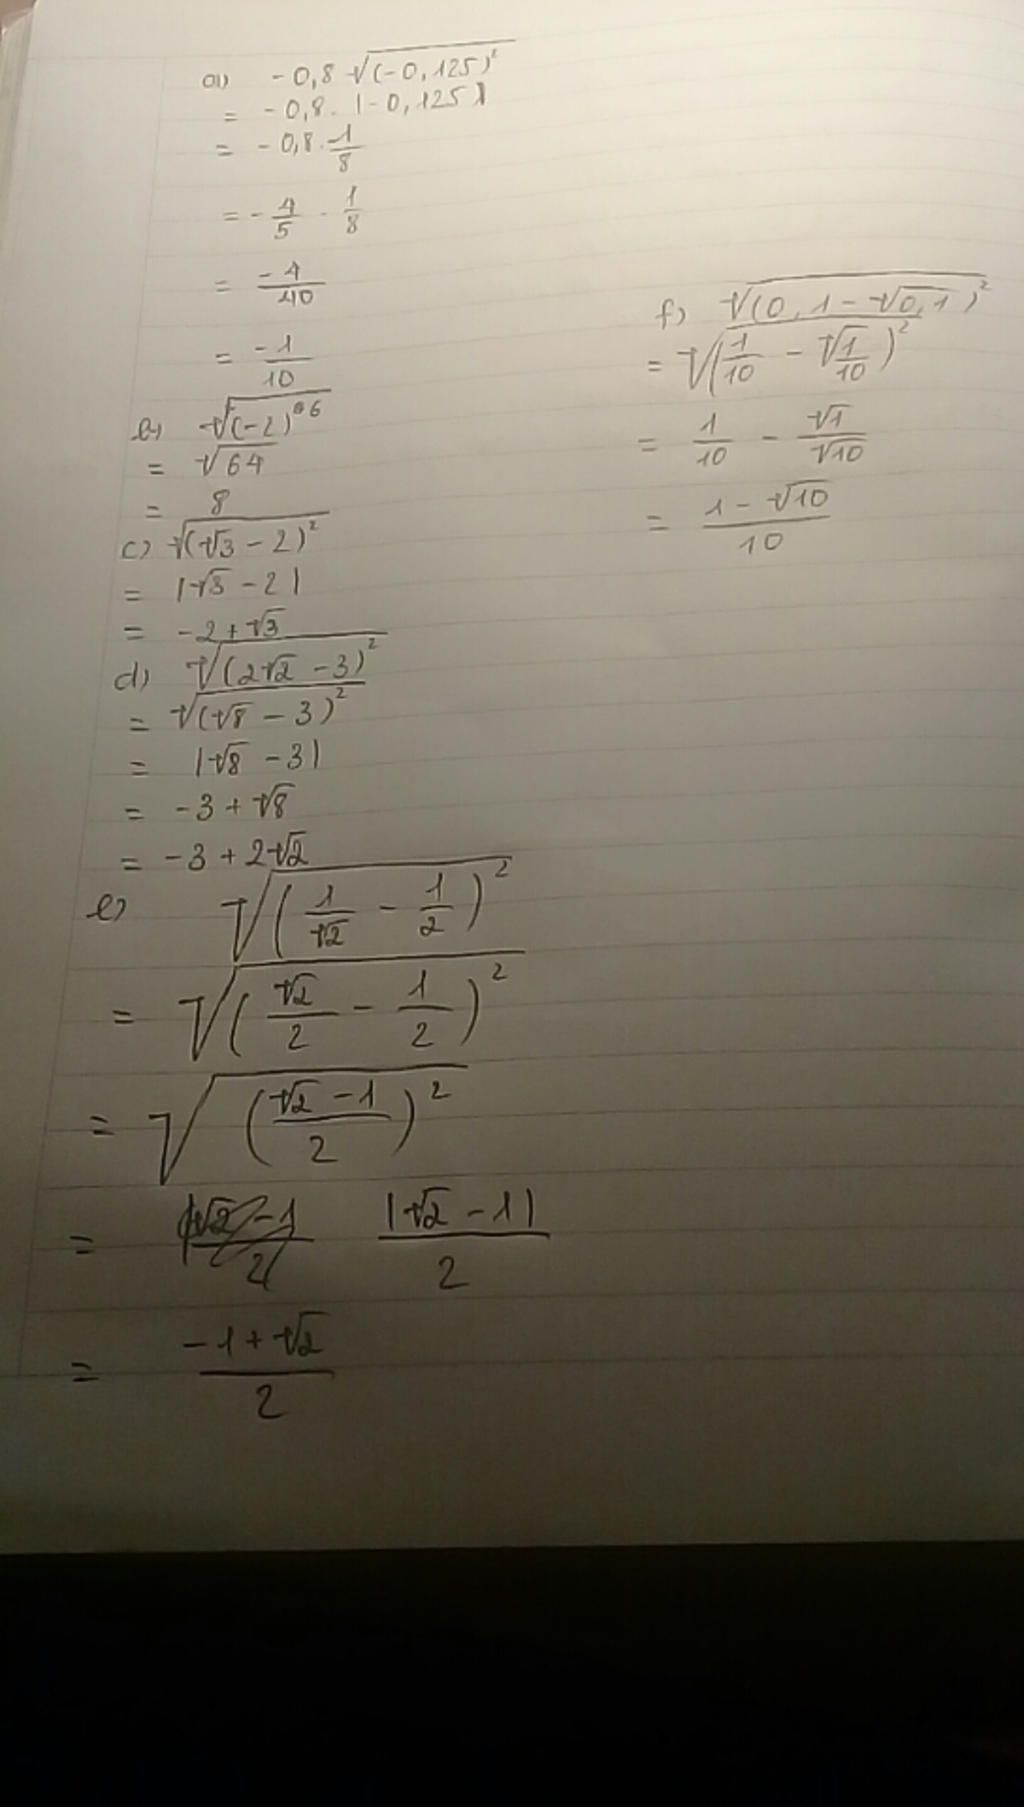 a) -0,8 √(-0,125)²
= -0,8 . |-0,125|
= -0,8 . 1/8
= - 4/5 . 1/8
= -4/40
= -1/10
b) √(-2)⁶
= √64
= 8
c) √(√3 - 2)²
= |√3 - 2|
= -2 + √3
d) √(2√2 - 3)²
= √(√8 - 3)²
= |√8 - 3|
= -3 + √8
= -3 + 2√2
e) √(1/√2 - 1/2)²
= √(√2/2 - 1/2)²
= √((√2 - 1)/2)²
= |√2 - 1|/2
= (-1 + √2)/2
f) √(0,1 - √0,1)²
= √(1/10 - √(1/10))²
= 1/10 - √1/√10
= (1 - √10)/10